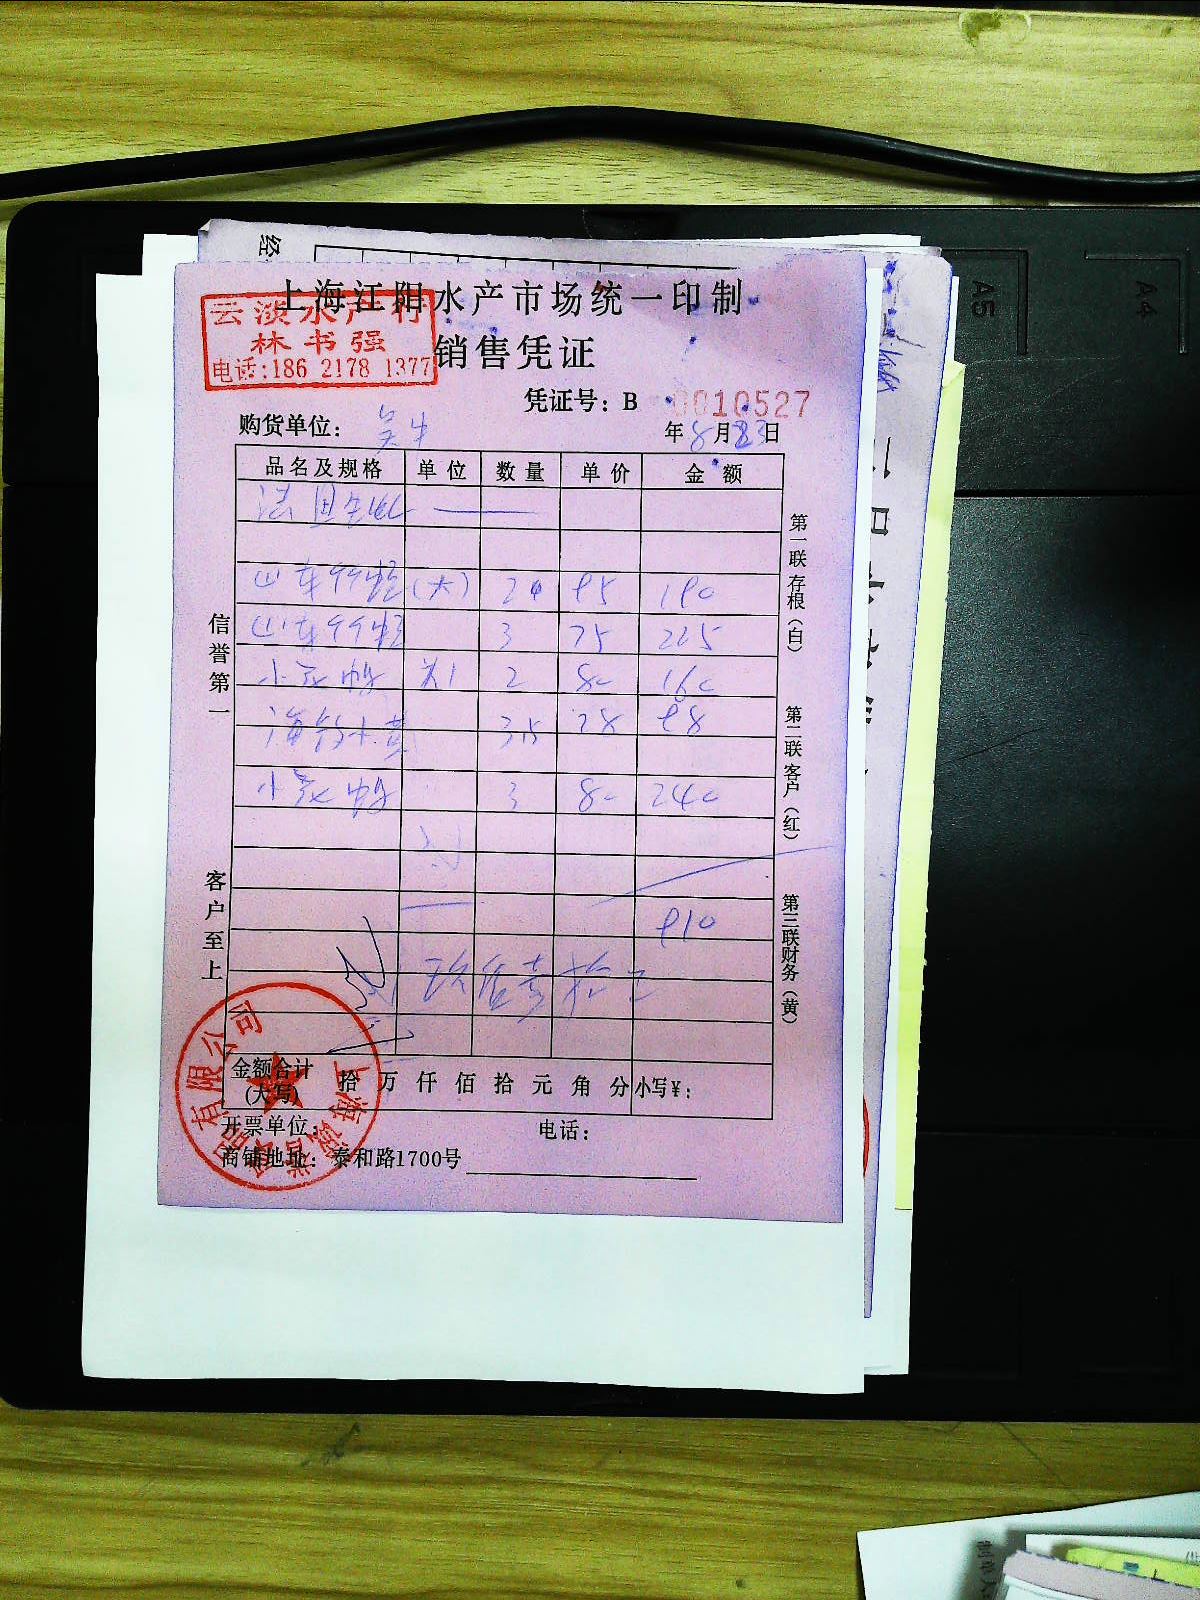 上海江阳水产市场统一印制
云淡水产行
林书强
电话:186 2178 1377
销售凭证
凭证号：B 0010527
购货单位：
年8月23日
品名及规格 单位 数量 单价 金额
山东 (大) 2 95 190
山东 3 75 225
小 2 80 160
海 3.5 28 98
小 3 80 240
910
玖佰壹拾元
金额合计
(大写) 拾 万 仟 佰 拾 元 角 分 小写¥：
开票单位： 电话：
商铺地址：泰和路1700号
信誉第一
客户至上
第一联存根（白）
第二联客户（红）
第三联财务（黄）
上海 有限公司
A5
A4